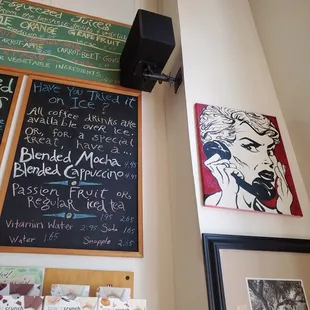 -Squeezed Juices
ORANGE GRAPEFRUIT
CARROT-APPLE CARROT-BEET-
OR VEGETABLE INGREDIENTS
Have You Tried it
on Ice?
All coffee drinks are
available over ice.
Or, for a special
treat, have a...
Blended Mocha 4.95
Blended Cappuccino
Passion Fruit or
Regular iced tea
1.95 2.65
Vitamin Water 2.95 Soda 1.65
Water 1.65 Snapple 2.65